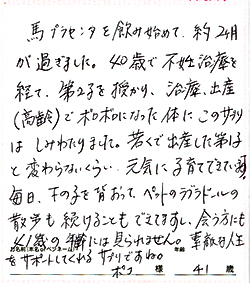 馬プラセンタを飲み始めて、約2ヶ月
が過ぎました。40歳で不妊治療を
経て、第2子を授かり、治療、出産
(高齢)でボロボロになった体にこのサプリ
はしみわたりました。若くで出産した第1子
と変わらないくらい、元気に子育てできています。
毎日、下の子を背おって、ペットのラブラドールの
散歩も続けることもできてますし、会う方にも
41歳の には見られません。 素敵な人生
をサポートしてくれるサプリですね。
お名前(本名orペンネーム) ポコ 様 年齢 41 歳